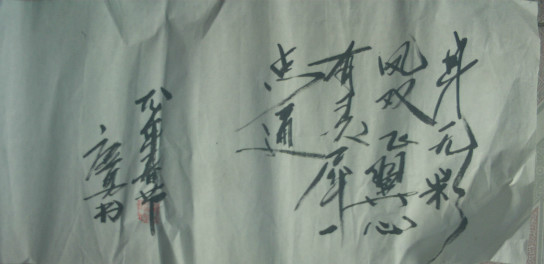 身无彩
凤双飞翼心
有灵犀一
点通